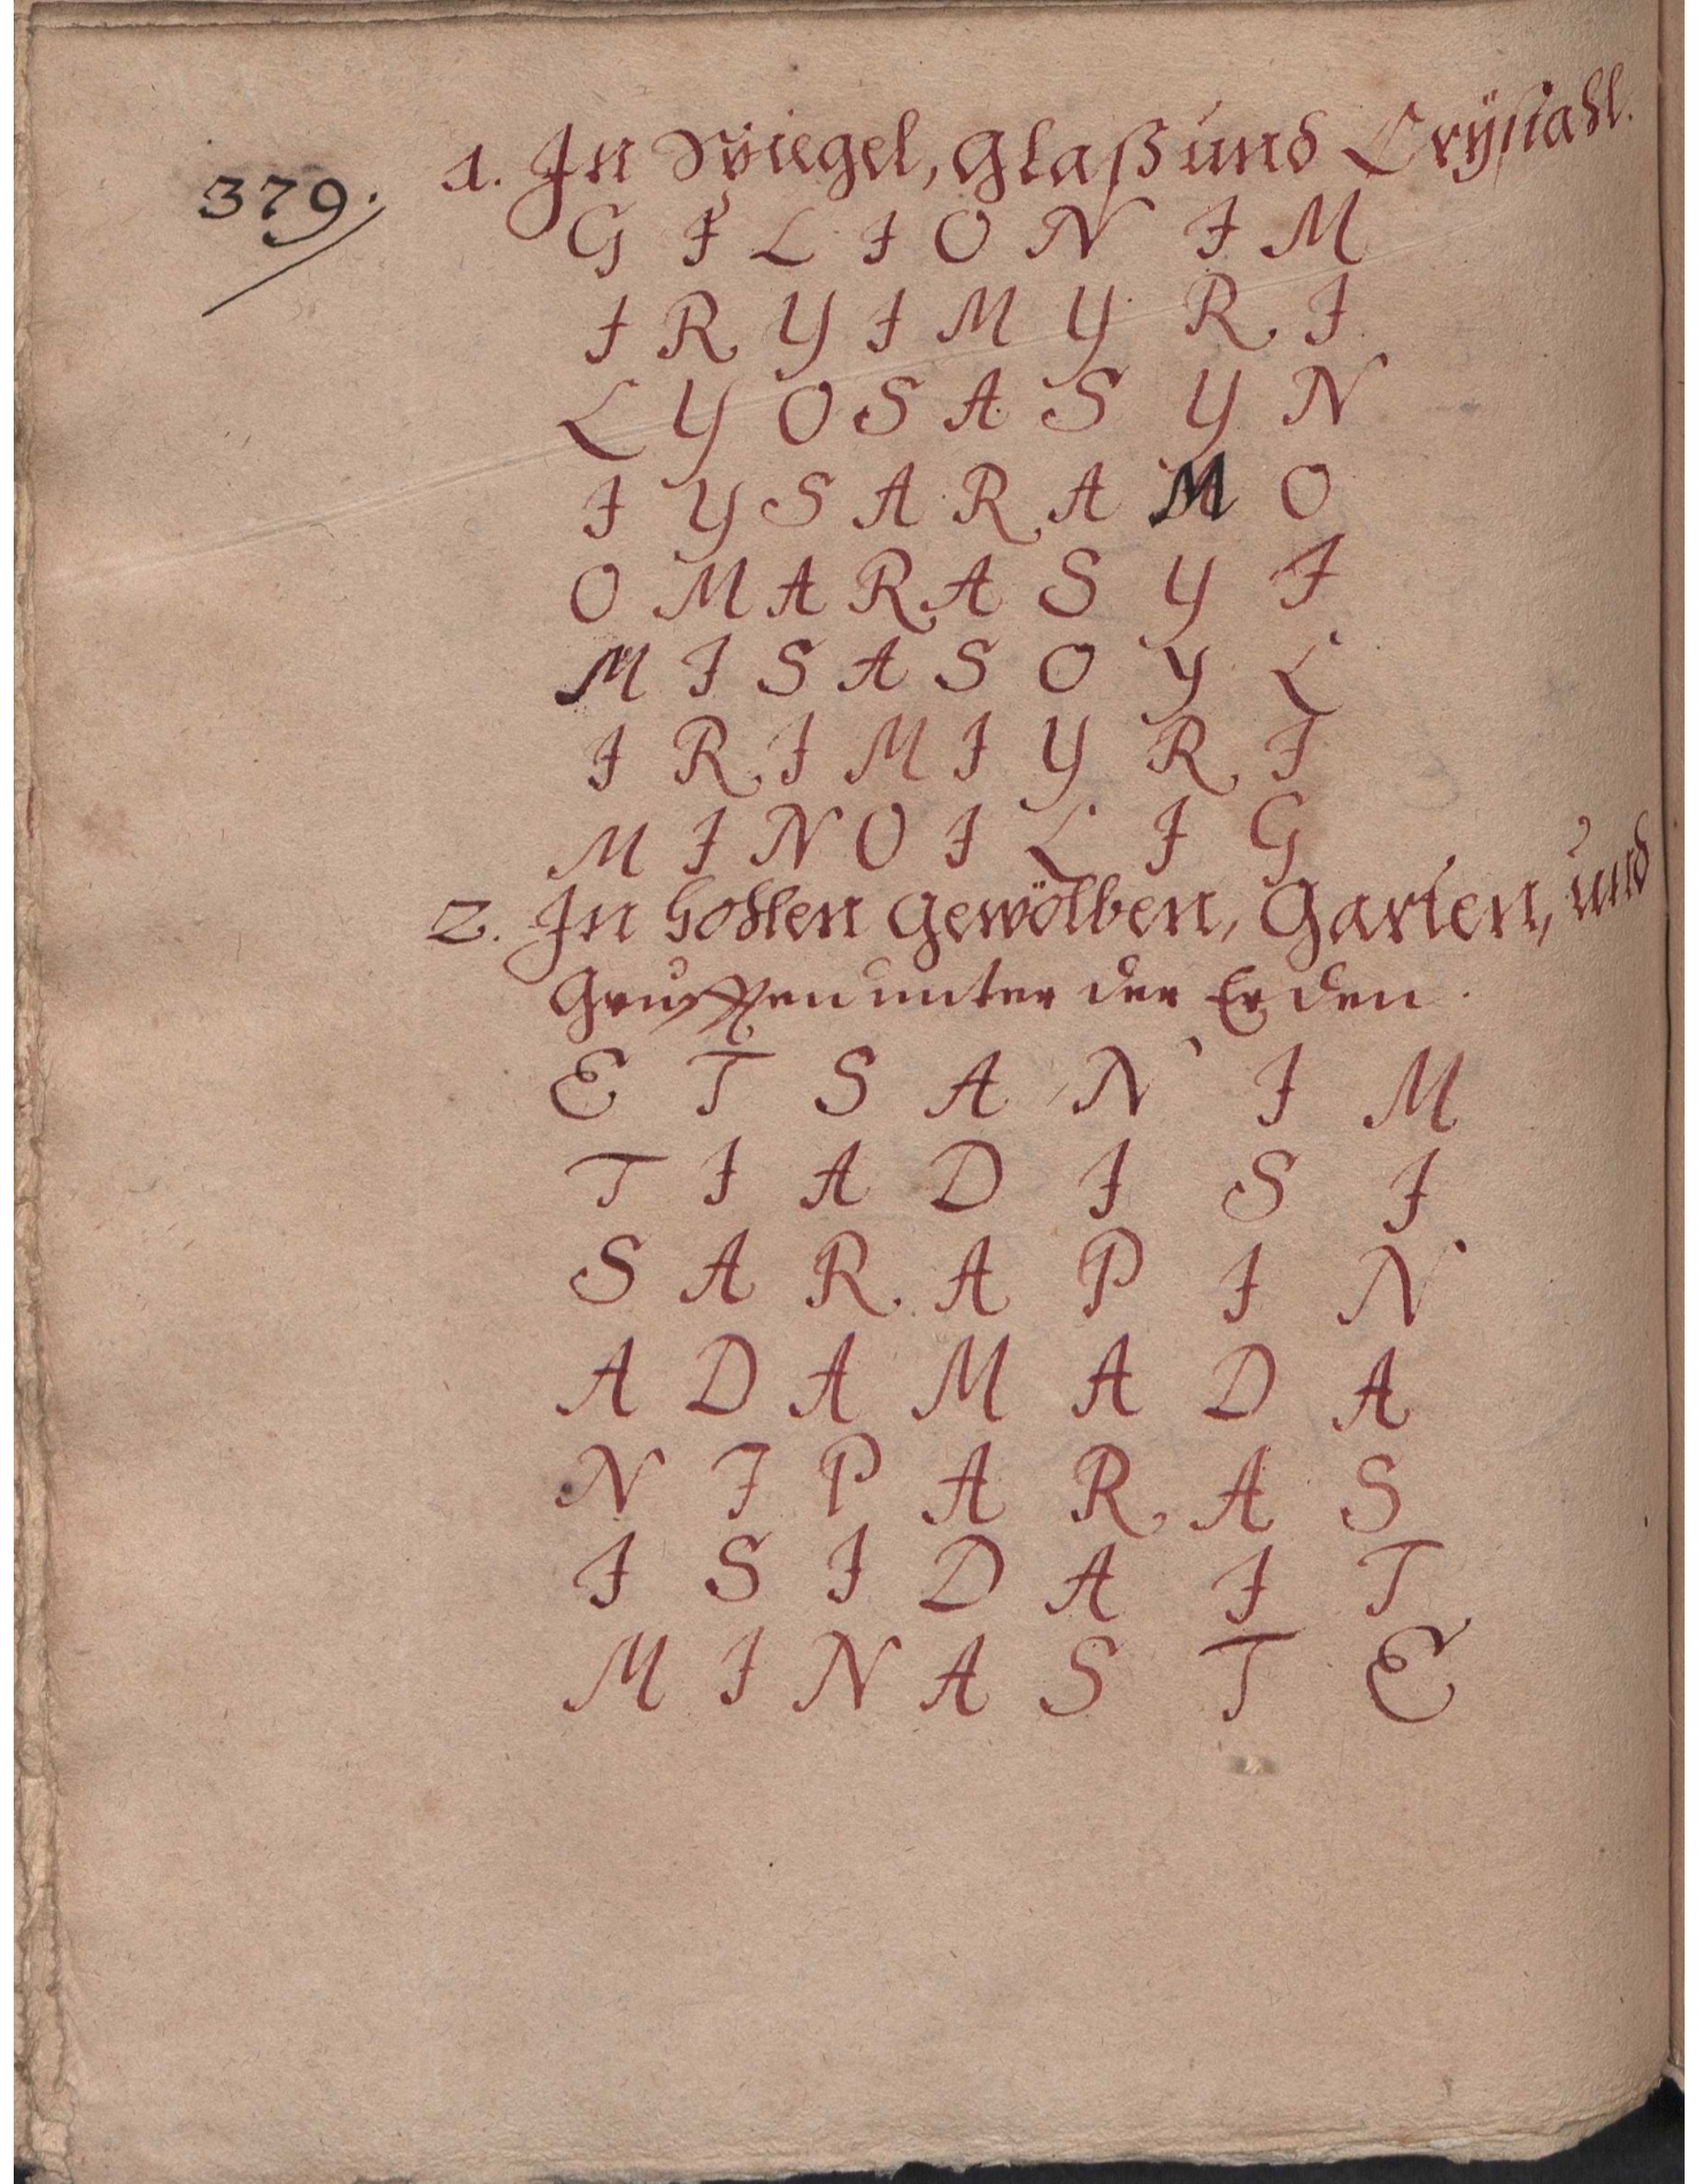 379.
1. In Spiegel, Glaß und Crÿstahl.
G I L I O N I M
I R Y I M Y R I
L Y O S A S Y N
I Y S A R A M O
O M A R A S Y I
M I S A S O Y L
I R I M I Y R I
M I N O I L I G
2. In hohlen Gewölben, Garten, und
Grufften unter der Erden.
E T S A N I M
T I A D I S I
S A R A P I N
A D A M A D A
N I P A R A S
I S I D A I T
M I N A S T E